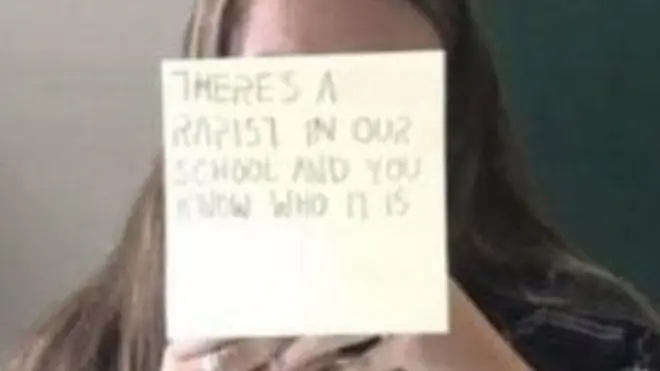 THERE'S A
RAPIST IN OUR
SCHOOL AND YOU
KNOW WHO IT IS